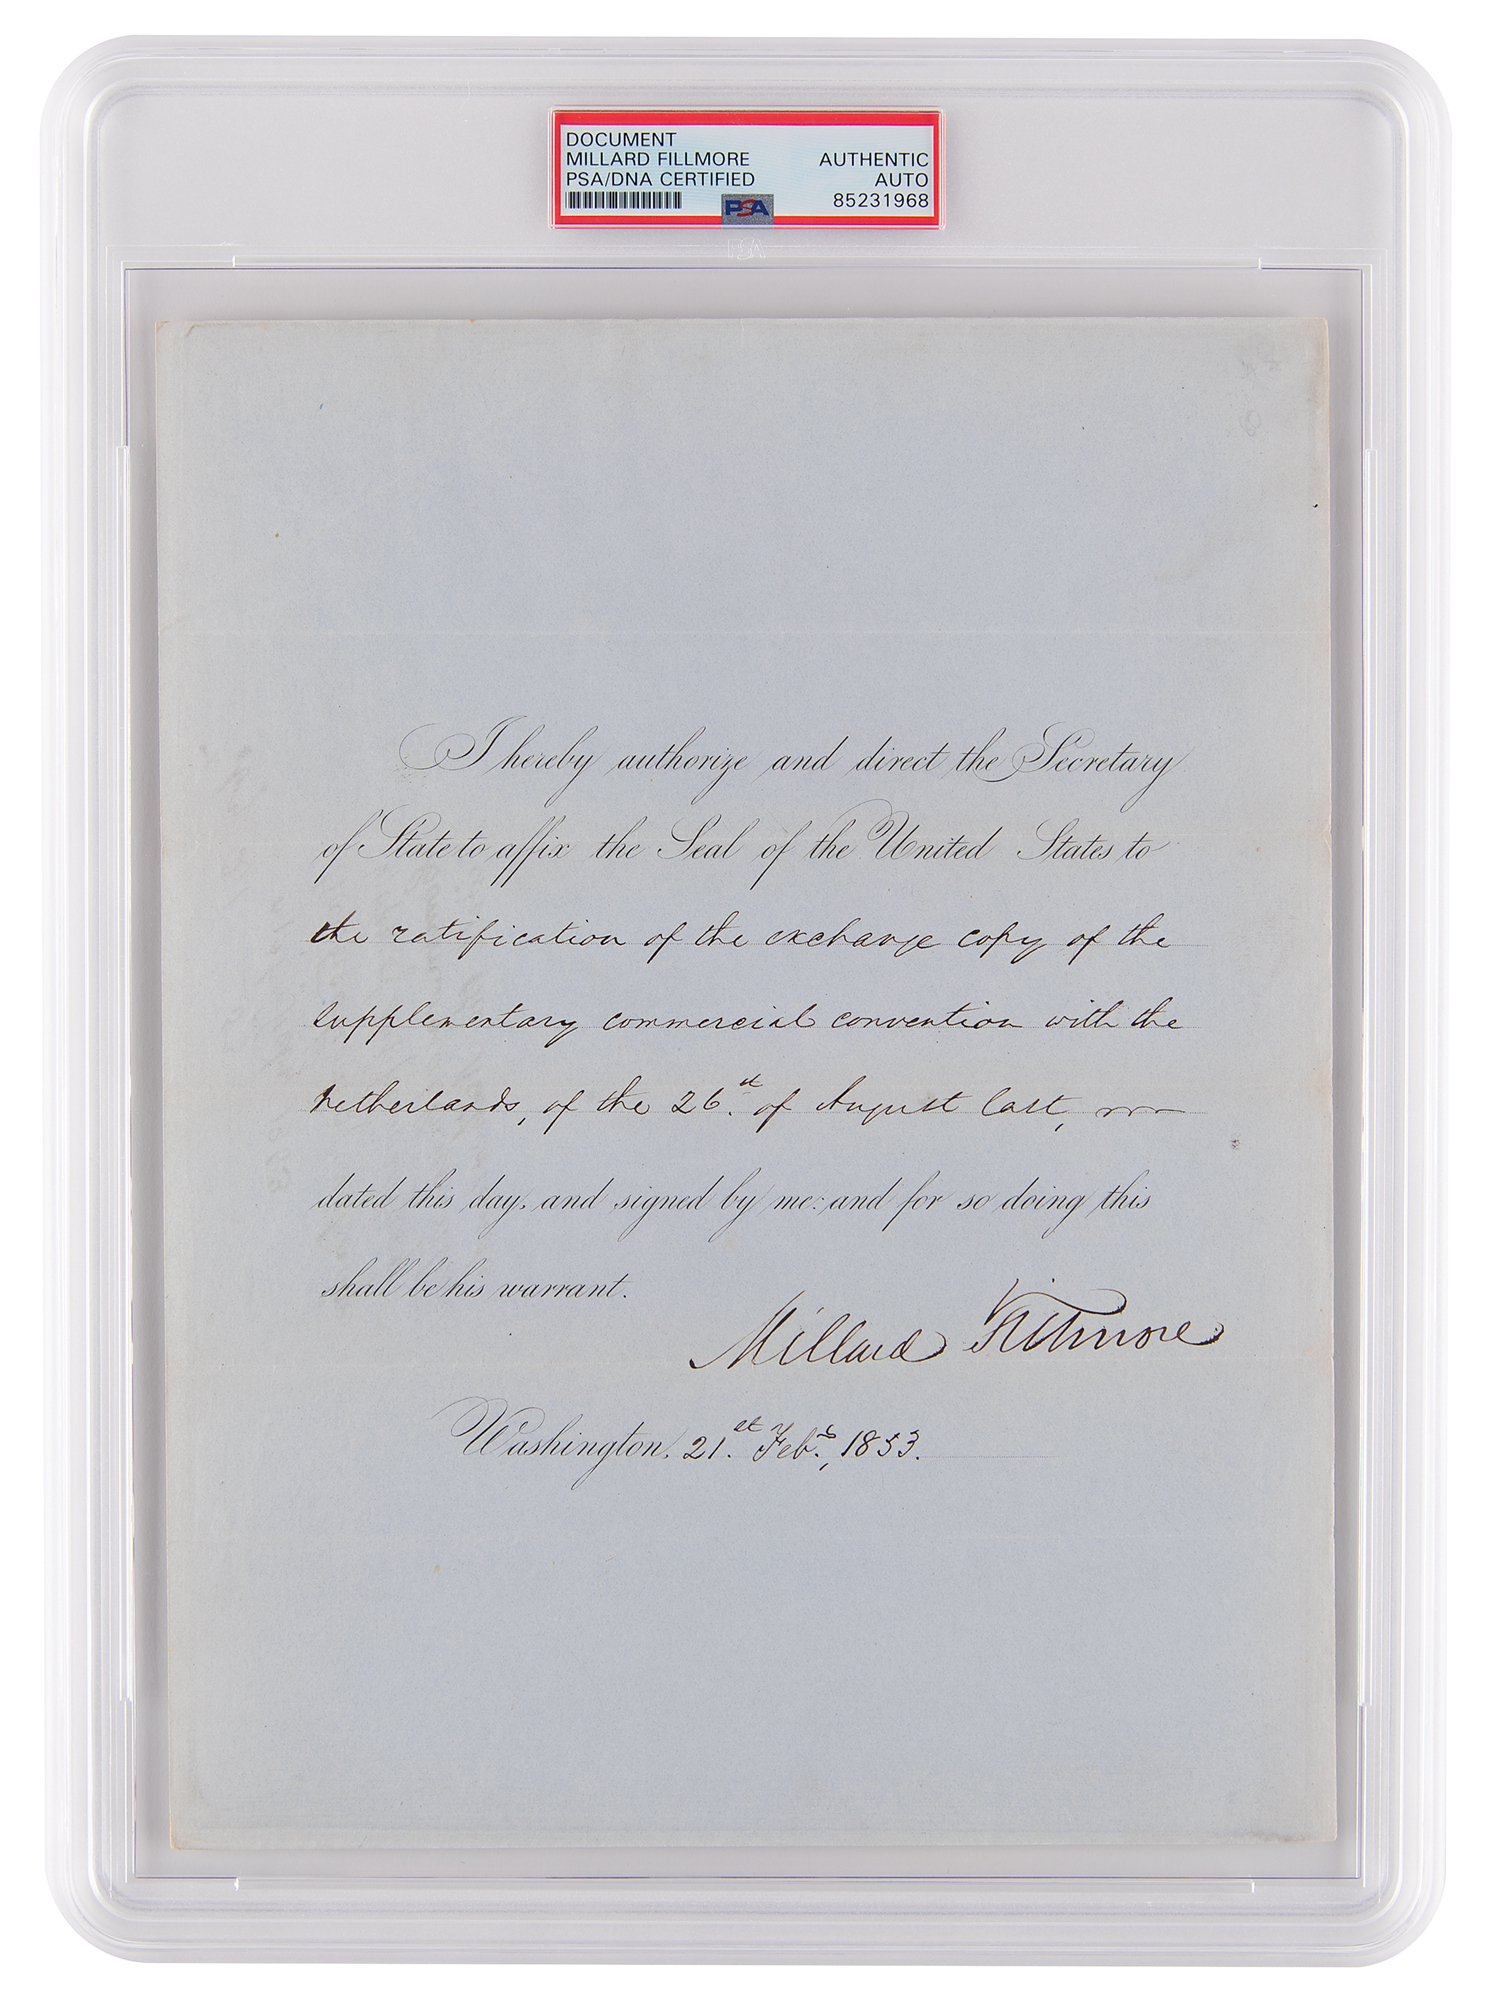 DOCUMENT
MILLARD FILLMORE AUTHENTIC
PSA/DNA CERTIFIED AUTO
PSA 85231968
PSA
I hereby authorize and direct the Secretary
of State to affix the Seal of the United States to
the ratification of the exchange copy of the
supplementary commercial convention with the
Netherlands, of the 26. of August last,
dated this day, and signed by me: and for so doing this
shall be his warrant.
Millard Fillmore
Washington, 21.st Feb., 1853.